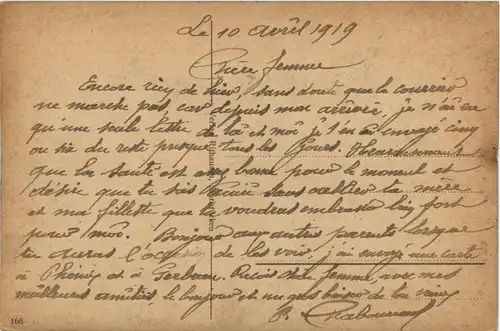 Le 10 avril 1919
Chère femme
Encore rien de hier, sans doute que le courrier
ne marche pas, car depuis mon arrivée, je n'ai eu
qu'une seule lettre de là et moi je t'en ai envoyé cinq
ou six du reste presque tous les jours. Heureusement
que la santé est bonne pour le moment et
désire que de aussi sans oublier la mère
et ma fillette que tu voudras embrasser bien fort
pour moi. Bonjour aux autres parents lorsque
tu auras l' de les voir, j'ai envoyé une carte
à et à femme, avec mes
meilleurs amitiés le bonjour et un gros baiser de ton
P.
166